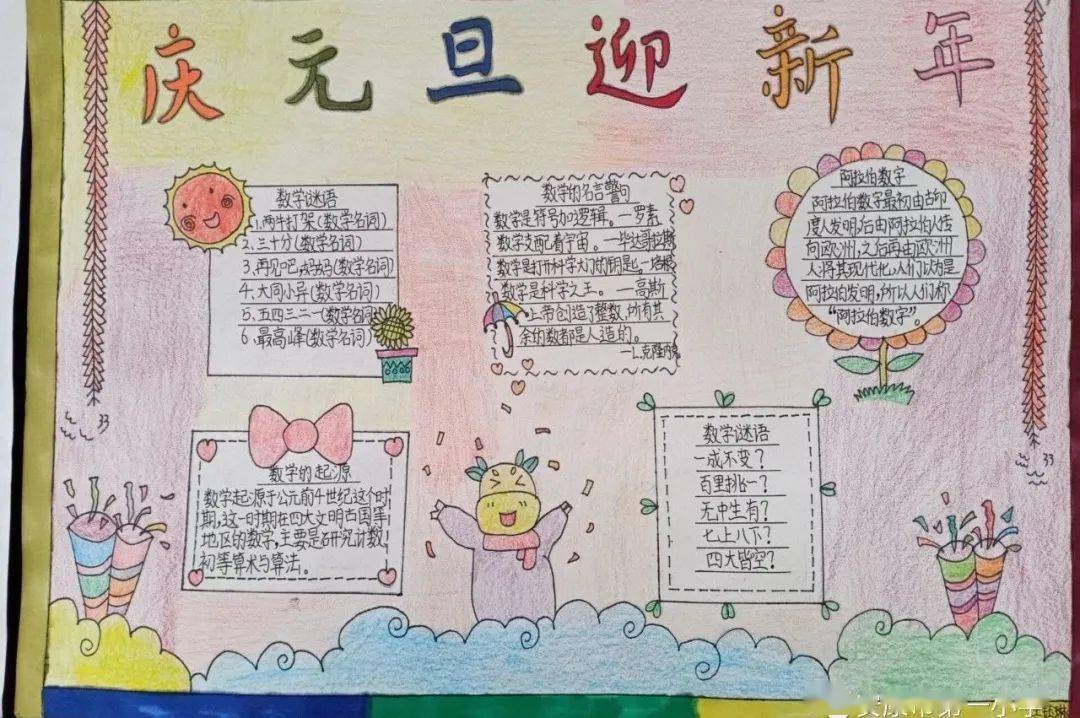 庆元旦迎新年
数学谜语
1、两牛打架(数学名词)
2、三十分(数学名词)
3、再见吧,妈妈(数学名词)
4、大同小异(数学名词)
5、五四三二一(数学名词)
6、最高峰(数学名词)
数学的名言警句
数学是符号加逻辑。—罗素
数学支配着宇宙。—毕达哥拉斯
数学是打开科学大门的钥匙。培根
数学是科学之王。—高斯
上帝创造了整数,所有其
余的数都是人造的。
—L.克隆内克
阿拉伯数字
阿拉伯数字最初由古印
度人发明,后由阿拉伯人传
向欧洲,之后再由欧洲
人将其现代化,人们以为是
阿拉伯发明,所以人们称
“阿拉伯数字”。
数学的起源
数学起源于公元前4世纪这个时
期,这一时期在四大文明古国等
地区的数学,主要是研究计数
初等算术与算法。
数学谜语
一成不变?
百里挑一?
无中生有?
七上八下?
四大皆空?